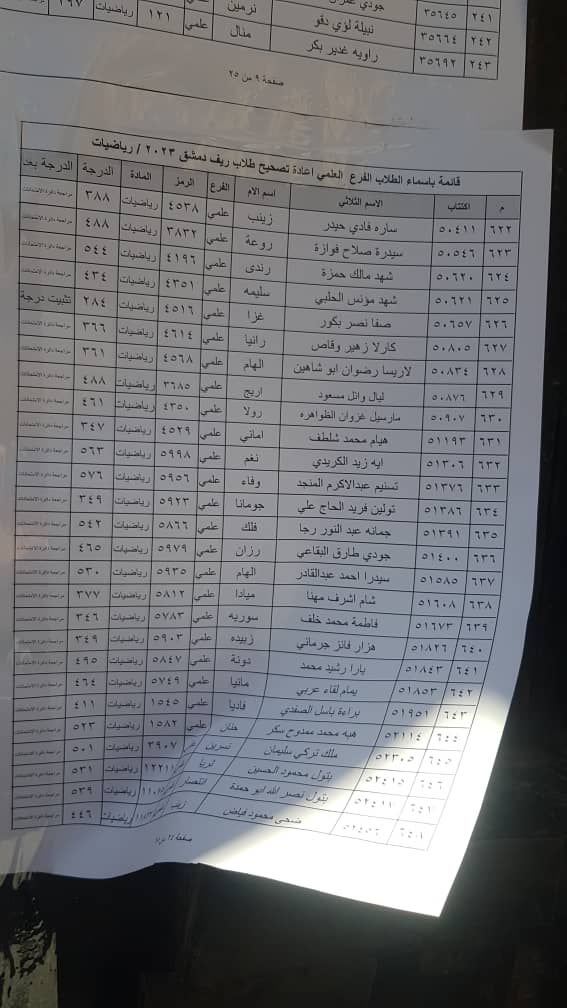 ٢٤١ ٣٥٦٤٥ جودي نرمين
٢٤٢ ٣٥٦٦٤ نبيلة لؤي دقو منال علمي ١٢١ رياضيات
٢٤٣ ٣٥٦٩٢ راويه غدير بكر
صفحة ٩ من ٢٥
قائمة باسماء الطلاب الفرع العلمي اعادة تصحيح طلاب ريف دمشق ٢٠٢٣ / رياضيات
م اكتتاب الاسم الثلاثي اسم الام الفرع الرمز المادة الدرجة الدرجة بعد
٦٢٢ ٥٠٤١١ ساره فادي حيدر زينب علمي ٤٥٣٨ رياضيات ٣٨٨ مراجعة دائرة الامتحانات
٦٢٣ ٥٠٥٤٦ سيدرة صلاح فوازة روعة علمي ٣٨٣٢ رياضيات ٤٨٨ مراجعة دائرة الامتحانات
٦٢٤ ٥٠٦٢٠ شهد مالك حمزة رندى علمي ٤١٩٦ رياضيات ٥٤٤ مراجعة دائرة الامتحانات
٦٢٥ ٥٠٦٢١ شهد مؤنس الحلبي سليمه علمي ٤٣٥١ رياضيات ٤٣٤ مراجعة دائرة الامتحانات
٦٢٦ ٥٠٦٥٧ صفا نصر بكور غزا علمي ٤٥١٦ رياضيات ٢٨٤ تثبيت درجة
٦٢٧ ٥٠٨٠٥ كارلا زهير وقاص رانيا علمي ٤٦١٤ رياضيات ٣٦٦ مراجعة دائرة الامتحانات
٦٢٨ ٥٠٨٣٤ لاريسا رضوان ابو شاهين الهام علمي ٤٥٦٨ رياضيات ٣٦١ مراجعة دائرة الامتحانات
٦٢٩ ٥٠٨٧٦ ليال وائل مسعود اريج علمي ٣٦٨٥ رياضيات ٤٨٨ مراجعة دائرة الامتحانات
٦٣٠ ٥٠٩٠٧ مارسيل غزوان الظواهره رولا علمي ٤٣٥٠ رياضيات ٤٦١ مراجعة دائرة الامتحانات
٦٣١ ٥١١٩٣ هيام محمد شلطف اماني علمي ٤٥٢٩ رياضيات ٣٤٧ مراجعة دائرة الامتحانات
٦٣٢ ٥١٣٠٦ ايه زيد الكريدي نغم علمي ٥٩٩٨ رياضيات ٥٦٣ مراجعة دائرة الامتحانات
٦٣٣ ٥١٣٧٦ تسنيم عبدالاكرم المنجد وفاء علمي ٥٩٥٦ رياضيات ٥٧٦ مراجعة دائرة الامتحانات
٦٣٤ ٥١٣٨٦ تولين فريد الحاج علي جومانا علمي ٥٩٢٣ رياضيات ٣٤٩ مراجعة دائرة الامتحانات
٦٣٥ ٥١٣٩١ جمانه عبد النور رجا فلك علمي ٥٨٦٦ رياضيات ٥٤٢ مراجعة دائرة الامتحانات
٦٣٦ ٥١٤٠٠ جودي طارق البقاعي رزان علمي ٥٩٧٩ رياضيات ٤٦٥ مراجعة دائرة الامتحانات
٦٣٧ ٥١٥٨٥ سيدرا احمد عبدالقادر الهام علمي ٥٩٣٥ رياضيات ٥٣٠ مراجعة دائرة الامتحانات
٦٣٨ ٥١٦٠٨ شام اشرف مهنا ميادا علمي ٥٨١٢ رياضيات ٣٧٧ مراجعة دائرة الامتحانات
٦٣٩ ٥١٦٧٣ فاطمة محمد خلف سوريه علمي ٥٧٨٣ رياضيات ٣٤٦ مراجعة دائرة الامتحانات
٦٤٠ ٥١٨٢٦ هزار فائز جرماني زبيده علمي ٥٩٠٣ رياضيات ٣٤٩ مراجعة دائرة الامتحانات
٦٤١ ٥١٨٤٣ يارا رشيد محمد دونة علمي ٥٨٤٧ رياضيات ٤٩٥ مراجعة دائرة الامتحانات
٦٤٢ ٥١٨٥٣ يمام لقاء عربي مانيا علمي ٥٧٤٩ رياضيات ٤٦٤ مراجعة دائرة الامتحانات
٦٤٣ ٥١٩٥١ براءة باسل الصفدي فاديا علمي ١٥٤٥ رياضيات ٤١١ مراجعة دائرة الامتحانات
٦٤٤ ٥٢١١٤ هبه محمد ممدوح سكر حنان علمي ١٥٨٢ رياضيات ٥٢٣ مراجعة دائرة الامتحانات
٦٤٥ ٥٢٣٠٥ ملك تركي سليمان نسرين ٣٩٠٧ رياضيات ٥٠١ مراجعة دائرة الامتحانات
٦٤٦ ٥٢٤١٥ بتول محمود الحسين ثريا ١٢٢١١ رياضيات ٥٣١ مراجعة دائرة الامتحانات
٥٢٤١٧ بتول نصر الله ابو حمدة انتصار رياضيات ٥٣٩ مراجعة دائرة الامتحانات
٥٢٤٥٦ ضحى محمود فياض رياضيات ٤٤٦ مراجعة دائرة الامتحانات